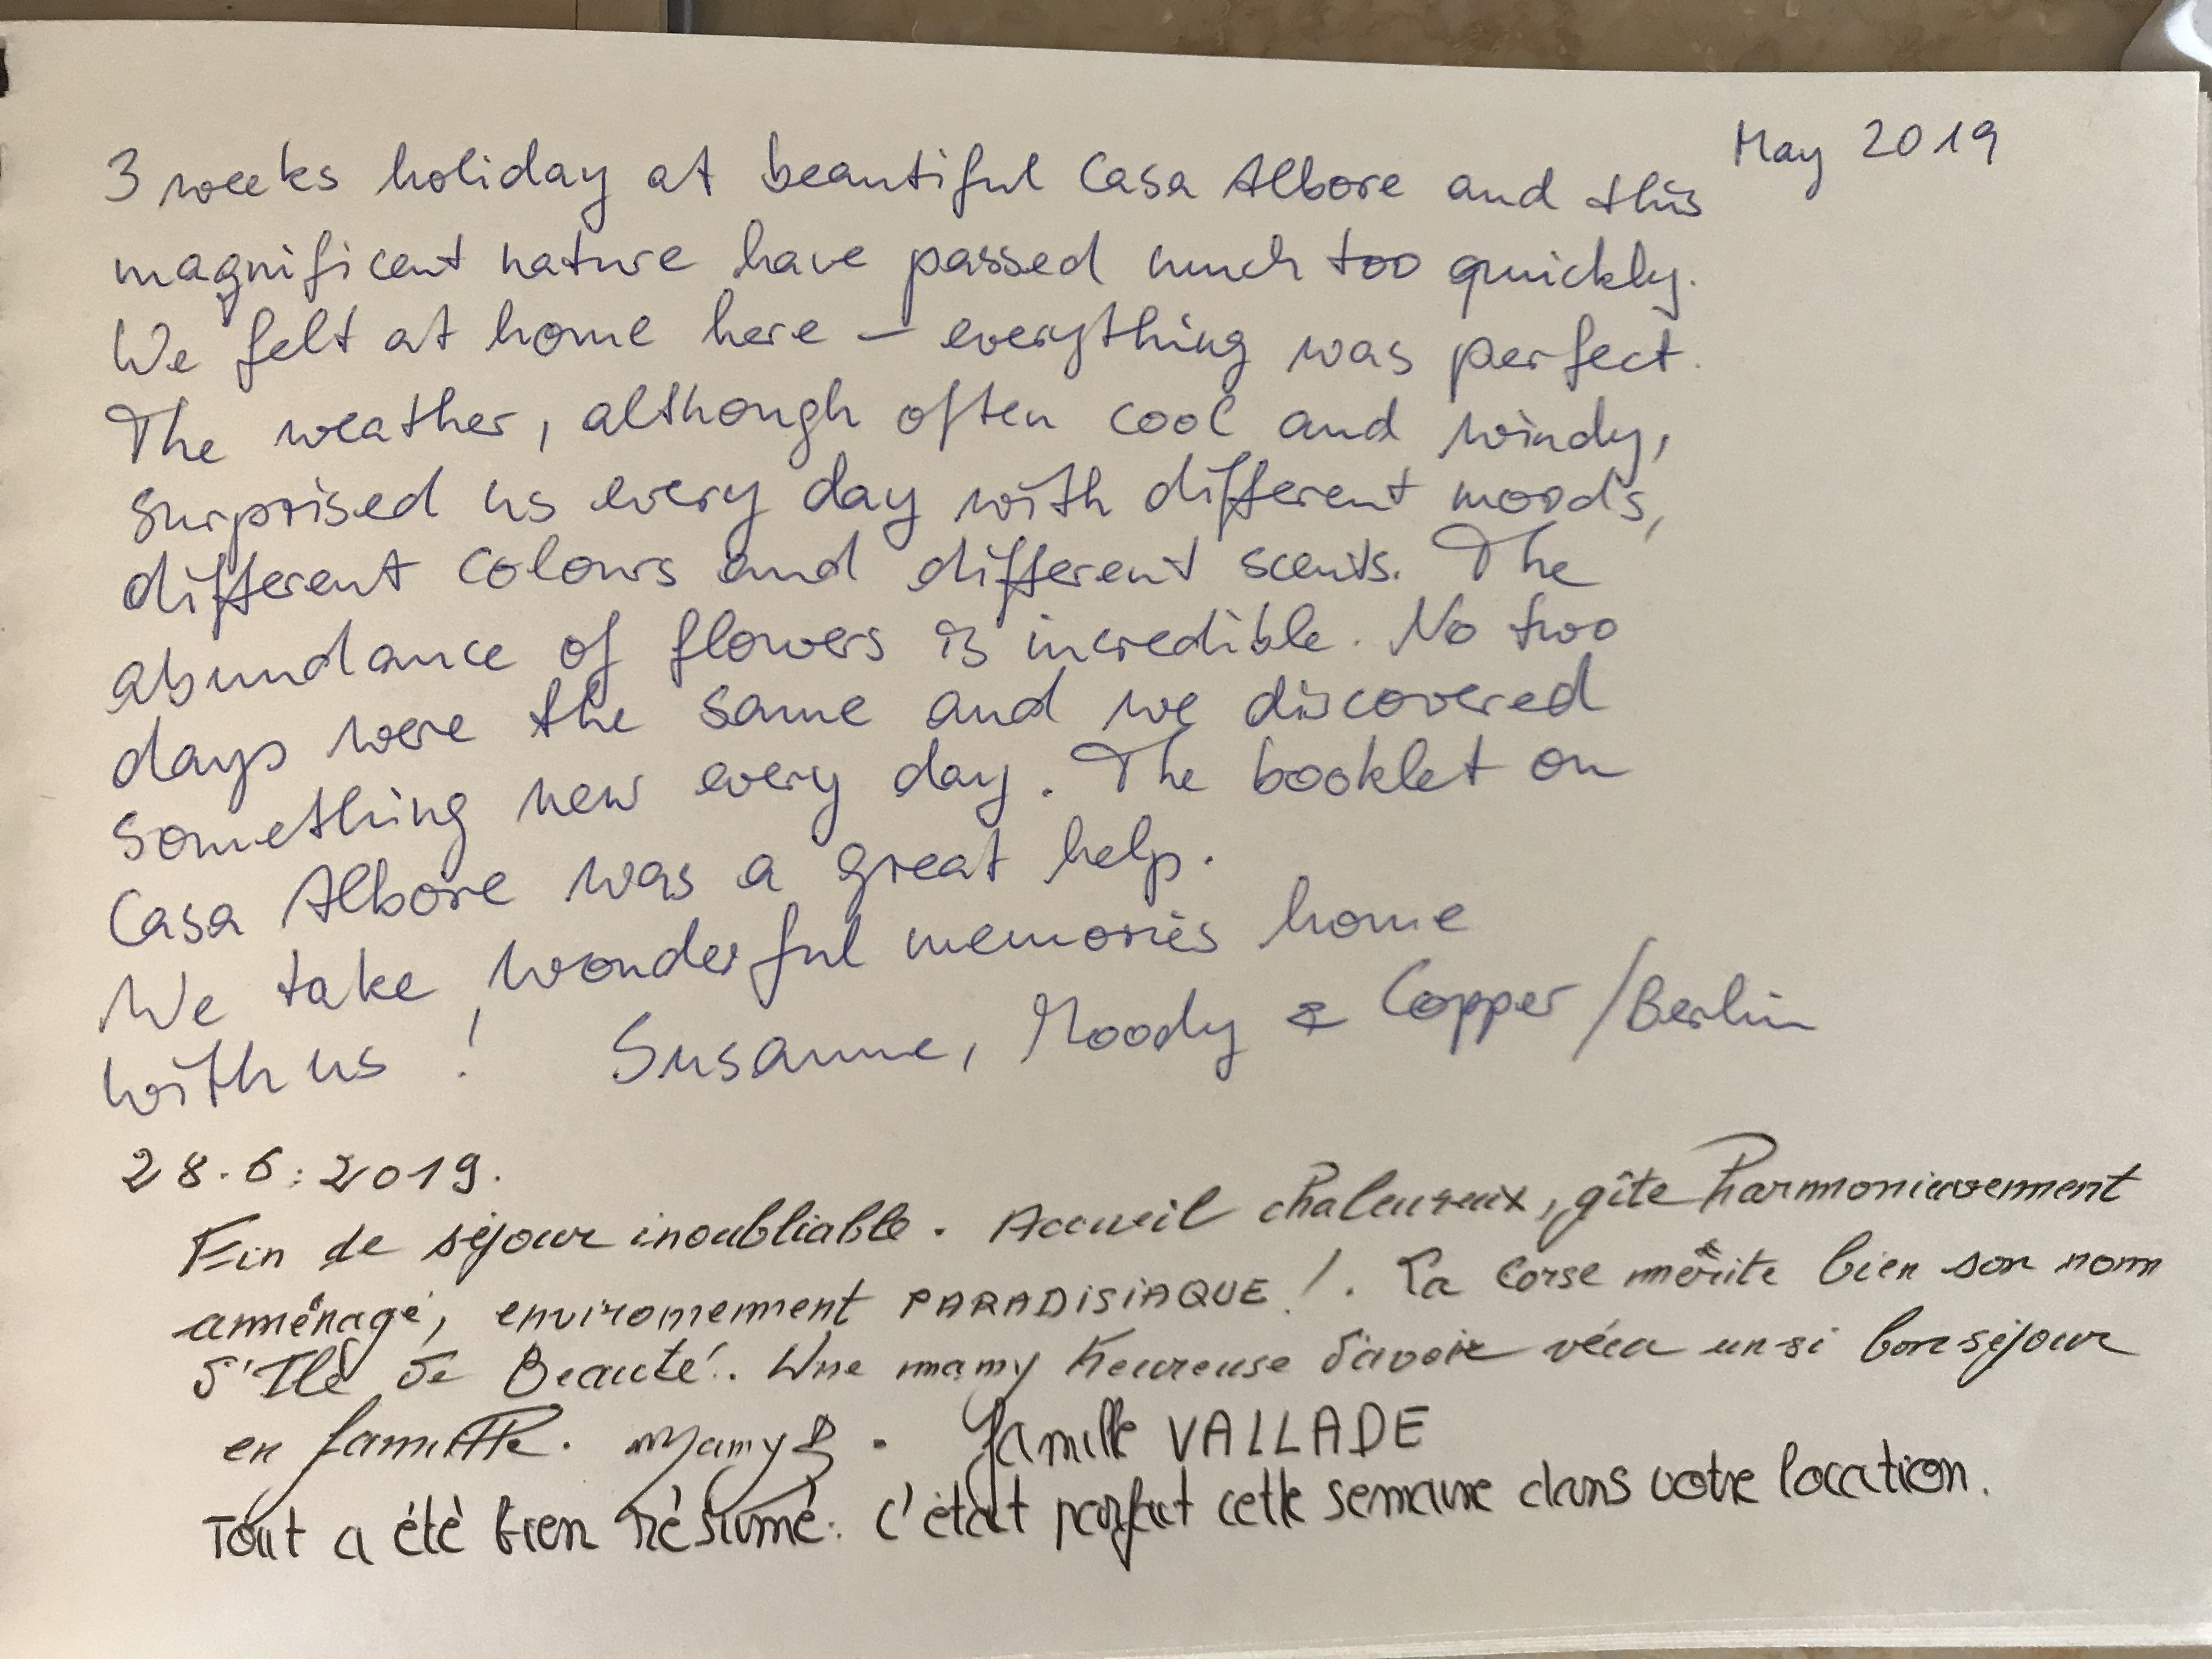 May 2019
3 weeks holiday at beautiful Casa Albore and this
magnificent nature have passed much too quickly.
We felt at home here – everything was perfect.
The weather, although often cool and windy,
surprised us every day with different moods,
different colours and different scents. The
abundance of flowers is incredible. No two
days were the same and we discovered
something new every day. The booklet on
Casa Albore was a great help.
We take wonderful memories home
with us ! Susanne, Moody & Copper / Berlin
28.6.2019.
Fin de séjour inoubliable. Accueil chaleureux, gîte harmonieusement
amménagé, environnement PARADISIAQUE !. La Corse mérite bien son nom
d'Ile de Beauté!. Une mamy heureuse d'avoir vécu un si bon séjour
en famille. Mamy . famille VALLADE
Tout a été bien résumé. c'était parfait cette semaine dans votre location.